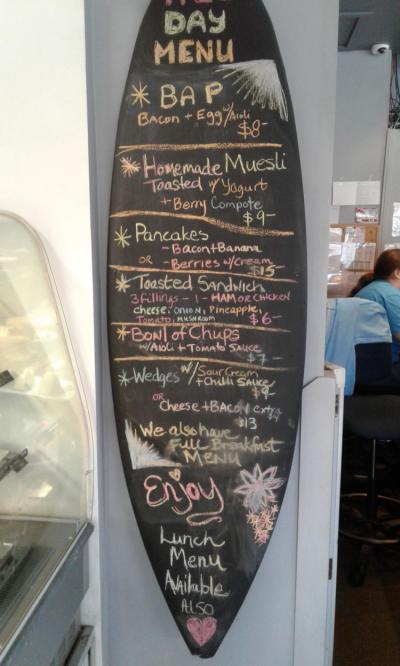 ALL
DAY
MENU
BAP
Bacon + Egg w/ Aioli
$8-
Homemade Muesli
Toasted w/ Yogurt
+ Berry Compote
$9-
Pancakes
- Bacon + Banana
OR - Berries w/ Cream
$15-
Toasted Sandwich
3 fillings - 1 - HAM OR CHICKEN
cheese, ONION, Pineapple,
Tomato, MUSHROOM $6-
Bowl of Chups
w/ Aioli + Tomato Sauce
$7-
Wedges w/ Sour Cream
+ Chilli Sauce
$9
OR
Cheese + BACON extra
$13
We also have
Full Breakfast
MENU
Enjoy
Lunch
Menu
Available
Also